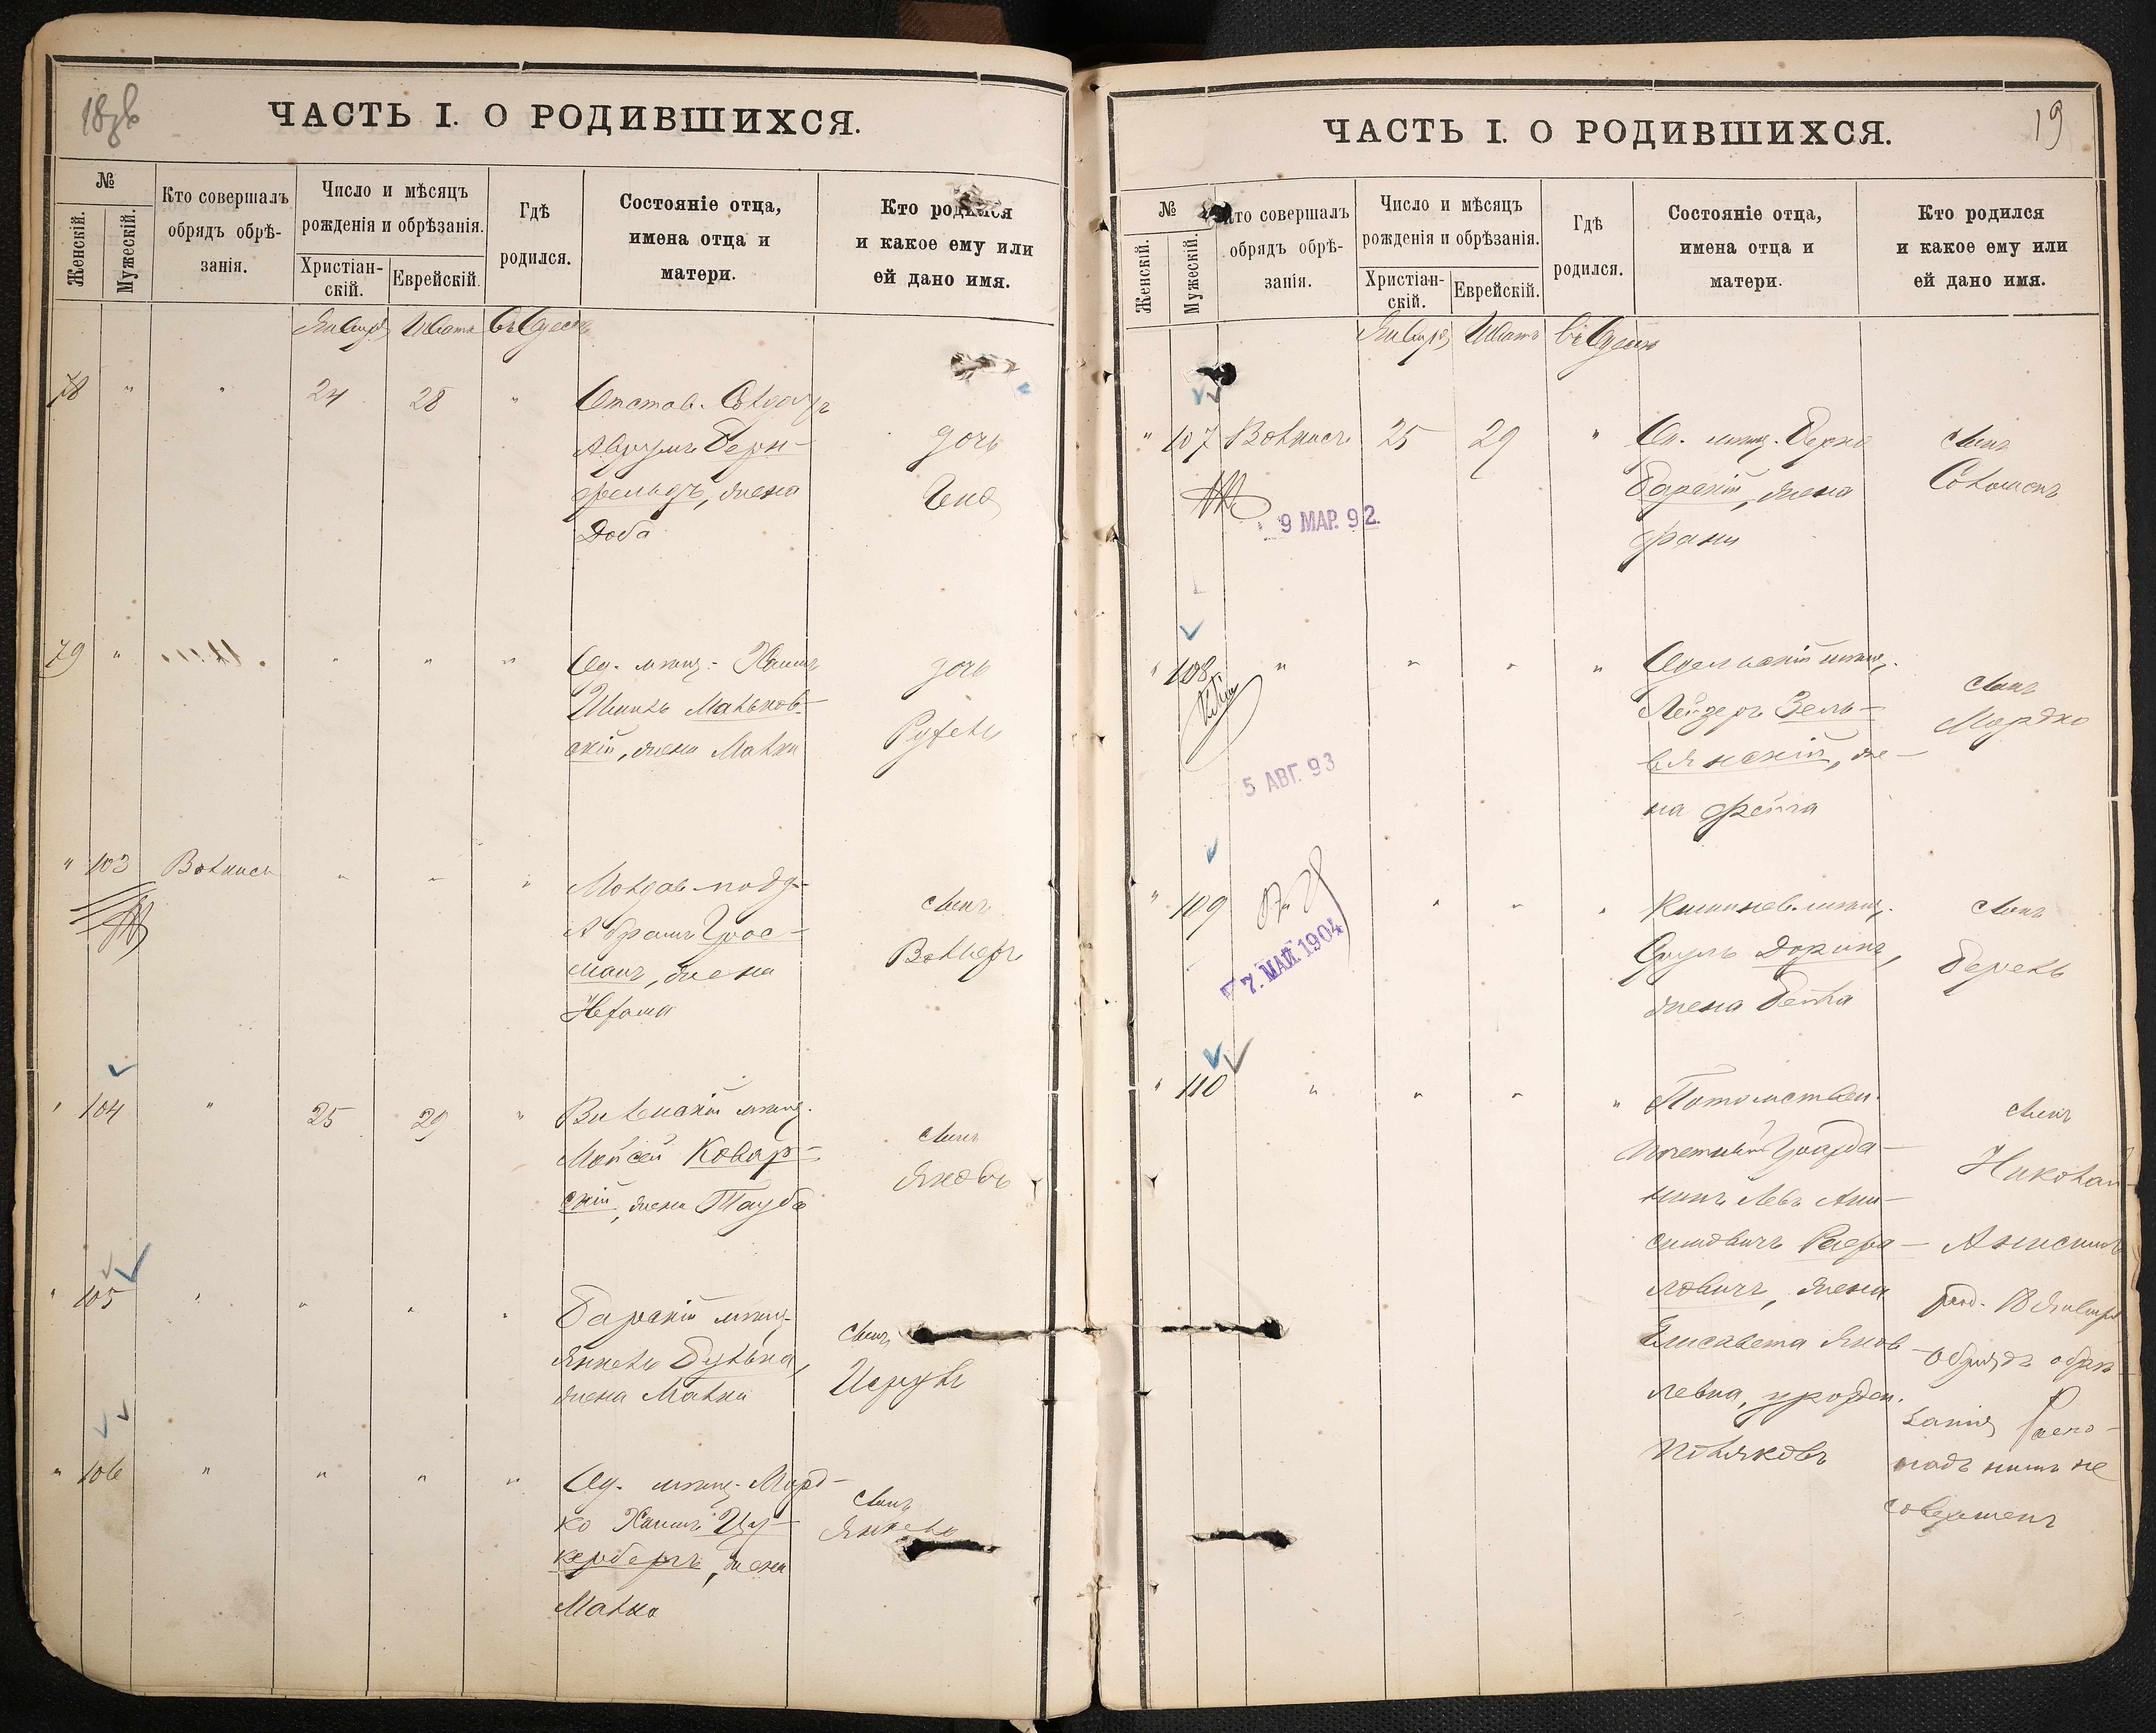 18
ЧАСТЬ I. О РОДИВШИХСЯ.
№
Женскій.
Мужескій.
Кто совершалъ
обрядъ обрѣ-
занія.
Число и мѣсяцъ
рожденія и обрѣзанія.
Христіан-
скій.
Еврейскій.
Гдѣ
родился.
Состояніе отца,
имена отца и
матери.
Кто родился
и какое ему или
ей дано имя.
Января Шватъ въ Одессѣ
78 " " 24 28 "
Отстав. Солдатъ
Аврумъ Берн-
фельдъ, жена
Доба
дочь
79 " " " "
Од. мѣщ. Хаимъ
Маньков-
скій, жена Малка
дочь
Рухель
" 103 " " "
Молдав. подд.
Абрамъ Грос-
манъ, жена
Нехама
сынъ
Вольфъ
" 104 " 25 29 "
Виленскій мѣщ.
Мойсей Ковар-
скій, жена Тауба
сынъ
Яковъ
" 105 " " " "
Барскій мѣщ.
Янкель
жена Малка
сынъ
" 106 " " " "
Од. мѣщ. Морд-
ко Хаимъ Цу-
кербергъ, жена
Малка
сынъ
Янкель
19
ЧАСТЬ I. О РОДИВШИХСЯ.
№
Женскій.
Мужескій.
Кто совершалъ
обрядъ обрѣ-
занія.
Число и мѣсяцъ
рожденія и обрѣзанія.
Христіан-
скій.
Еврейскій.
Гдѣ
родился.
Состояніе отца,
имена отца и
матери.
Кто родился
и какое ему или
ей дано имя.
Января Шватъ въ Одессѣ
" 107 25 29 "
9 МАР. 92.
Од. мѣщ. Берко
жена
сынъ
Соломонъ
" 108 " " " "
5 АВГ. 93
мѣщ.
Лейзеръ Зель-
вянскій, же-
на Фейга
сынъ
Мордко
" 109 " " "
7. МАЙ 1904
Кишинев. мѣщ.
Сруль Доринъ,
жена Бейла
сынъ
Берель
" 110 " " " "
Потомствен.
почетный гражда-
нинъ Левъ Ани-
симовичъ Рафа-
ловичъ, жена
Елисавета Яков-
левна, урожден.
Поляковъ
сынъ
Николай-
Анисимъ
род. 18 Января
обрядъ обрѣ-
занія
надъ нимъ не
совершенъ